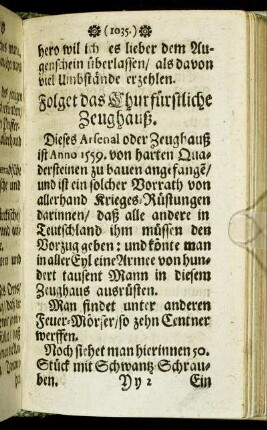 (1035.)
hero wil ich es lieber dem Au-
genschein überlassen/ als davon
viel Umbstände erzehlen.
Folget das Churfürstliche
Zeughauß.
Dieses Arsenal oder Zeughauß
ist Anno 1559. von harten Qua-
dersteinen zu bauen angefangē/
und ist ein solcher Vorrath von
allerhand Krieges-Rüstungen
darinnen/ daß alle andere in
Teutschland ihm müssen den
Vorzug geben: und könte man
in aller Eyl eine Armee von hun-
dert tausent Mann in diesem
Zeughaus ausrüsten.
Man findet unter anderen
Feuer-Mörser/so zehn Centner
werffen.
Noch siehet man hierinnen 50.
Stück mit Schwantz-Schrau-
ben.
Yy 2
Ein